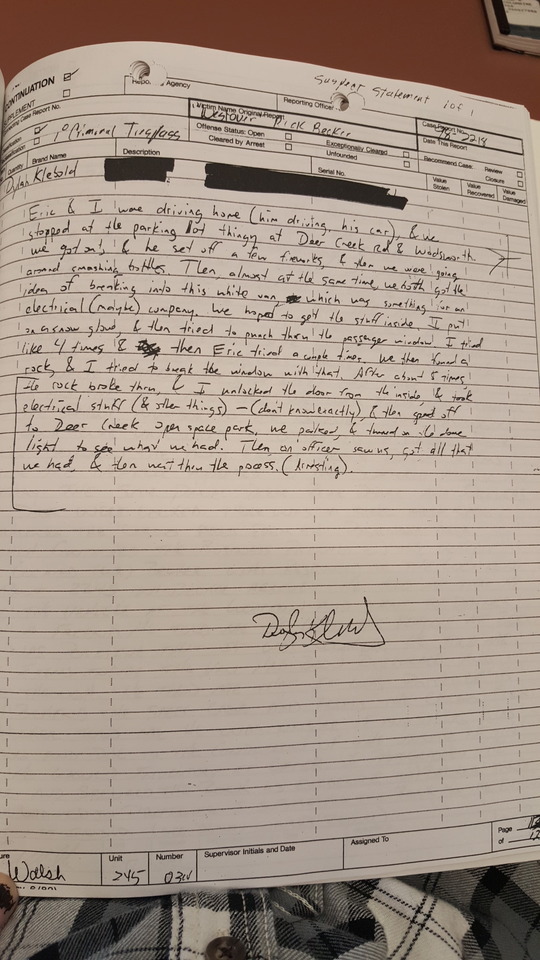 Suspect Statement 1 of 1
CONTINUATION
Agency
Reporting Officer
SUPPLEMENT
Case Report No.
Victim Name Original Report
Rick Becker
Case Report No.
98-2218
1° Criminal Trespass
Offense Status: Open
Exceptionally Cleared
Date This Report
Cleared by Arrest
Unfounded
Recommend Case: Review
Closure
Quantity Brand Name
Description
Serial No.
Value Stolen
Value Recovered
Value Damaged
Dylan Klebold
Eric & I were driving home (him driving, his car), & we
stopped at the parking lot thingy at Deer Creek Rd & Wadsworth
we got out, & he set off a few fireworks, & then we were going
around smashing bottles. Then almost at the same time, we both got the
idea of breaking into this white van which was something for an
electrical (maybe) company. We hoped to get the stuff inside. I put
on a snow glove & then tried to punch thru the passenger window I tried
like 4 times & then Eric tried a couple times. we then found a
rock, & I tried to break the window with that. After about 5 times,
the rock broke thru, & I unlocked the door from the inside, & took
electrical stuff (& other things) - (don't know exactly) & then sped off
to Deer Creek open space park, we parked, & turned on the dome
light to see what we had. Then, an officer saw us, got all that
we had, & then went thru the process. (Arresting).
Unit
Number
Supervisor Initials and Date
Assigned To
Page
of
Walsh
245